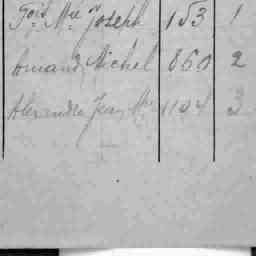 Fois Mie Joseph 153 1
Amand Michel 860 2
Alexandre Jean Mie 1104 3